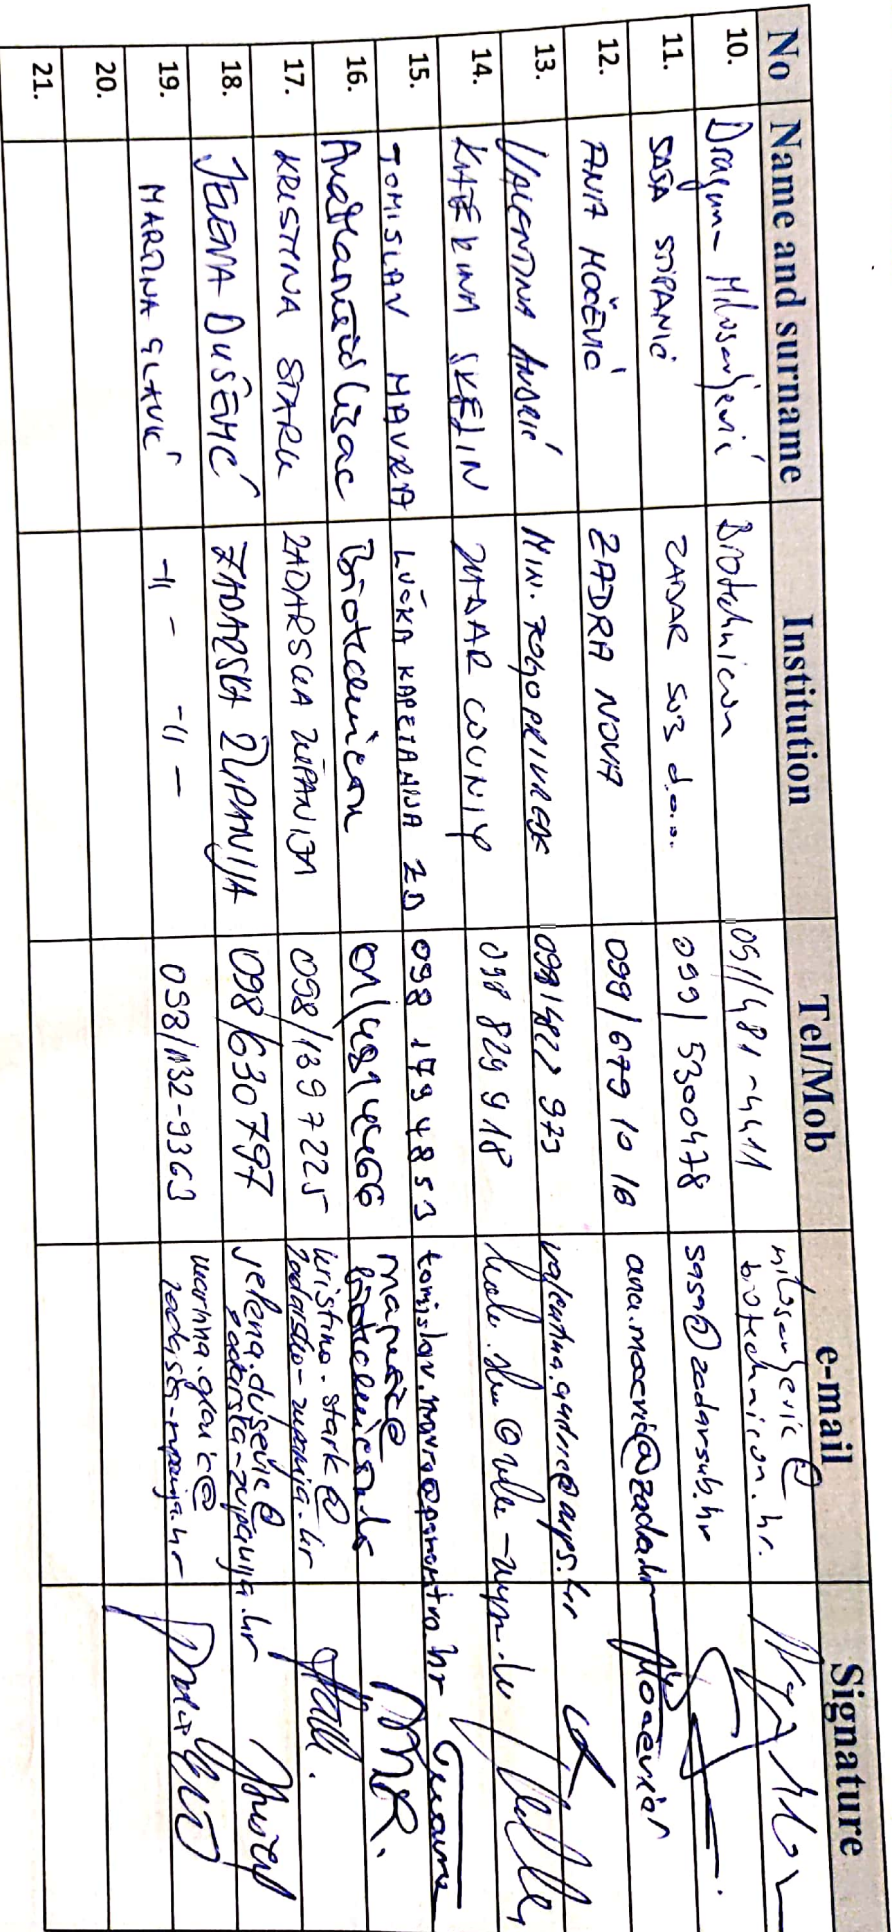 No Name and surname Institution Tel/Mob e-mail Signature
10. Dragana Milosavljević Biotechnicon 091/481-4411 milosavljevic@
biotechnicon.hr.
11. SAŠA STIPANIĆ ZADAR SUB d.o.o. 099/5300478 sasa@zadarsub.hr
12. ANA MOČEVIĆ ZADRA NOVA 099/679 10 16 ana.mocevic@zadra.hr Močević
13. VALENTINA ANDRIĆ MIN. POLJOPRIVREDE 099/4822 973 valentina.andric@apprrr.hr
14. KATERINA SKELIN ZADAR COUNTY 098 829 918
15. TOMISLAV MAVRA LUČKA KAPETANIJA ZD 098 1794853 tomislav.mavra@pomorstvo.hr
16. Ana Marušić Lisac Biotechnicon 01/4814466 marusic@
biotechnicon.hr
17. KRISTINA STARK ZADARSKA ŽUPANIJA 098/1397225 kristina.stark@
zadarska-zupanija.hr
18. JELENA DUŠEVIĆ ZADARSKA ŽUPANIJA 098/630797 jelena.dusevic@
zadarska-zupanija.hr
19. MARTINA GLAVIĆ -||- -||- 098/132-9363 martina.glavic@
zadarska-zupanija.hr
20.
21.